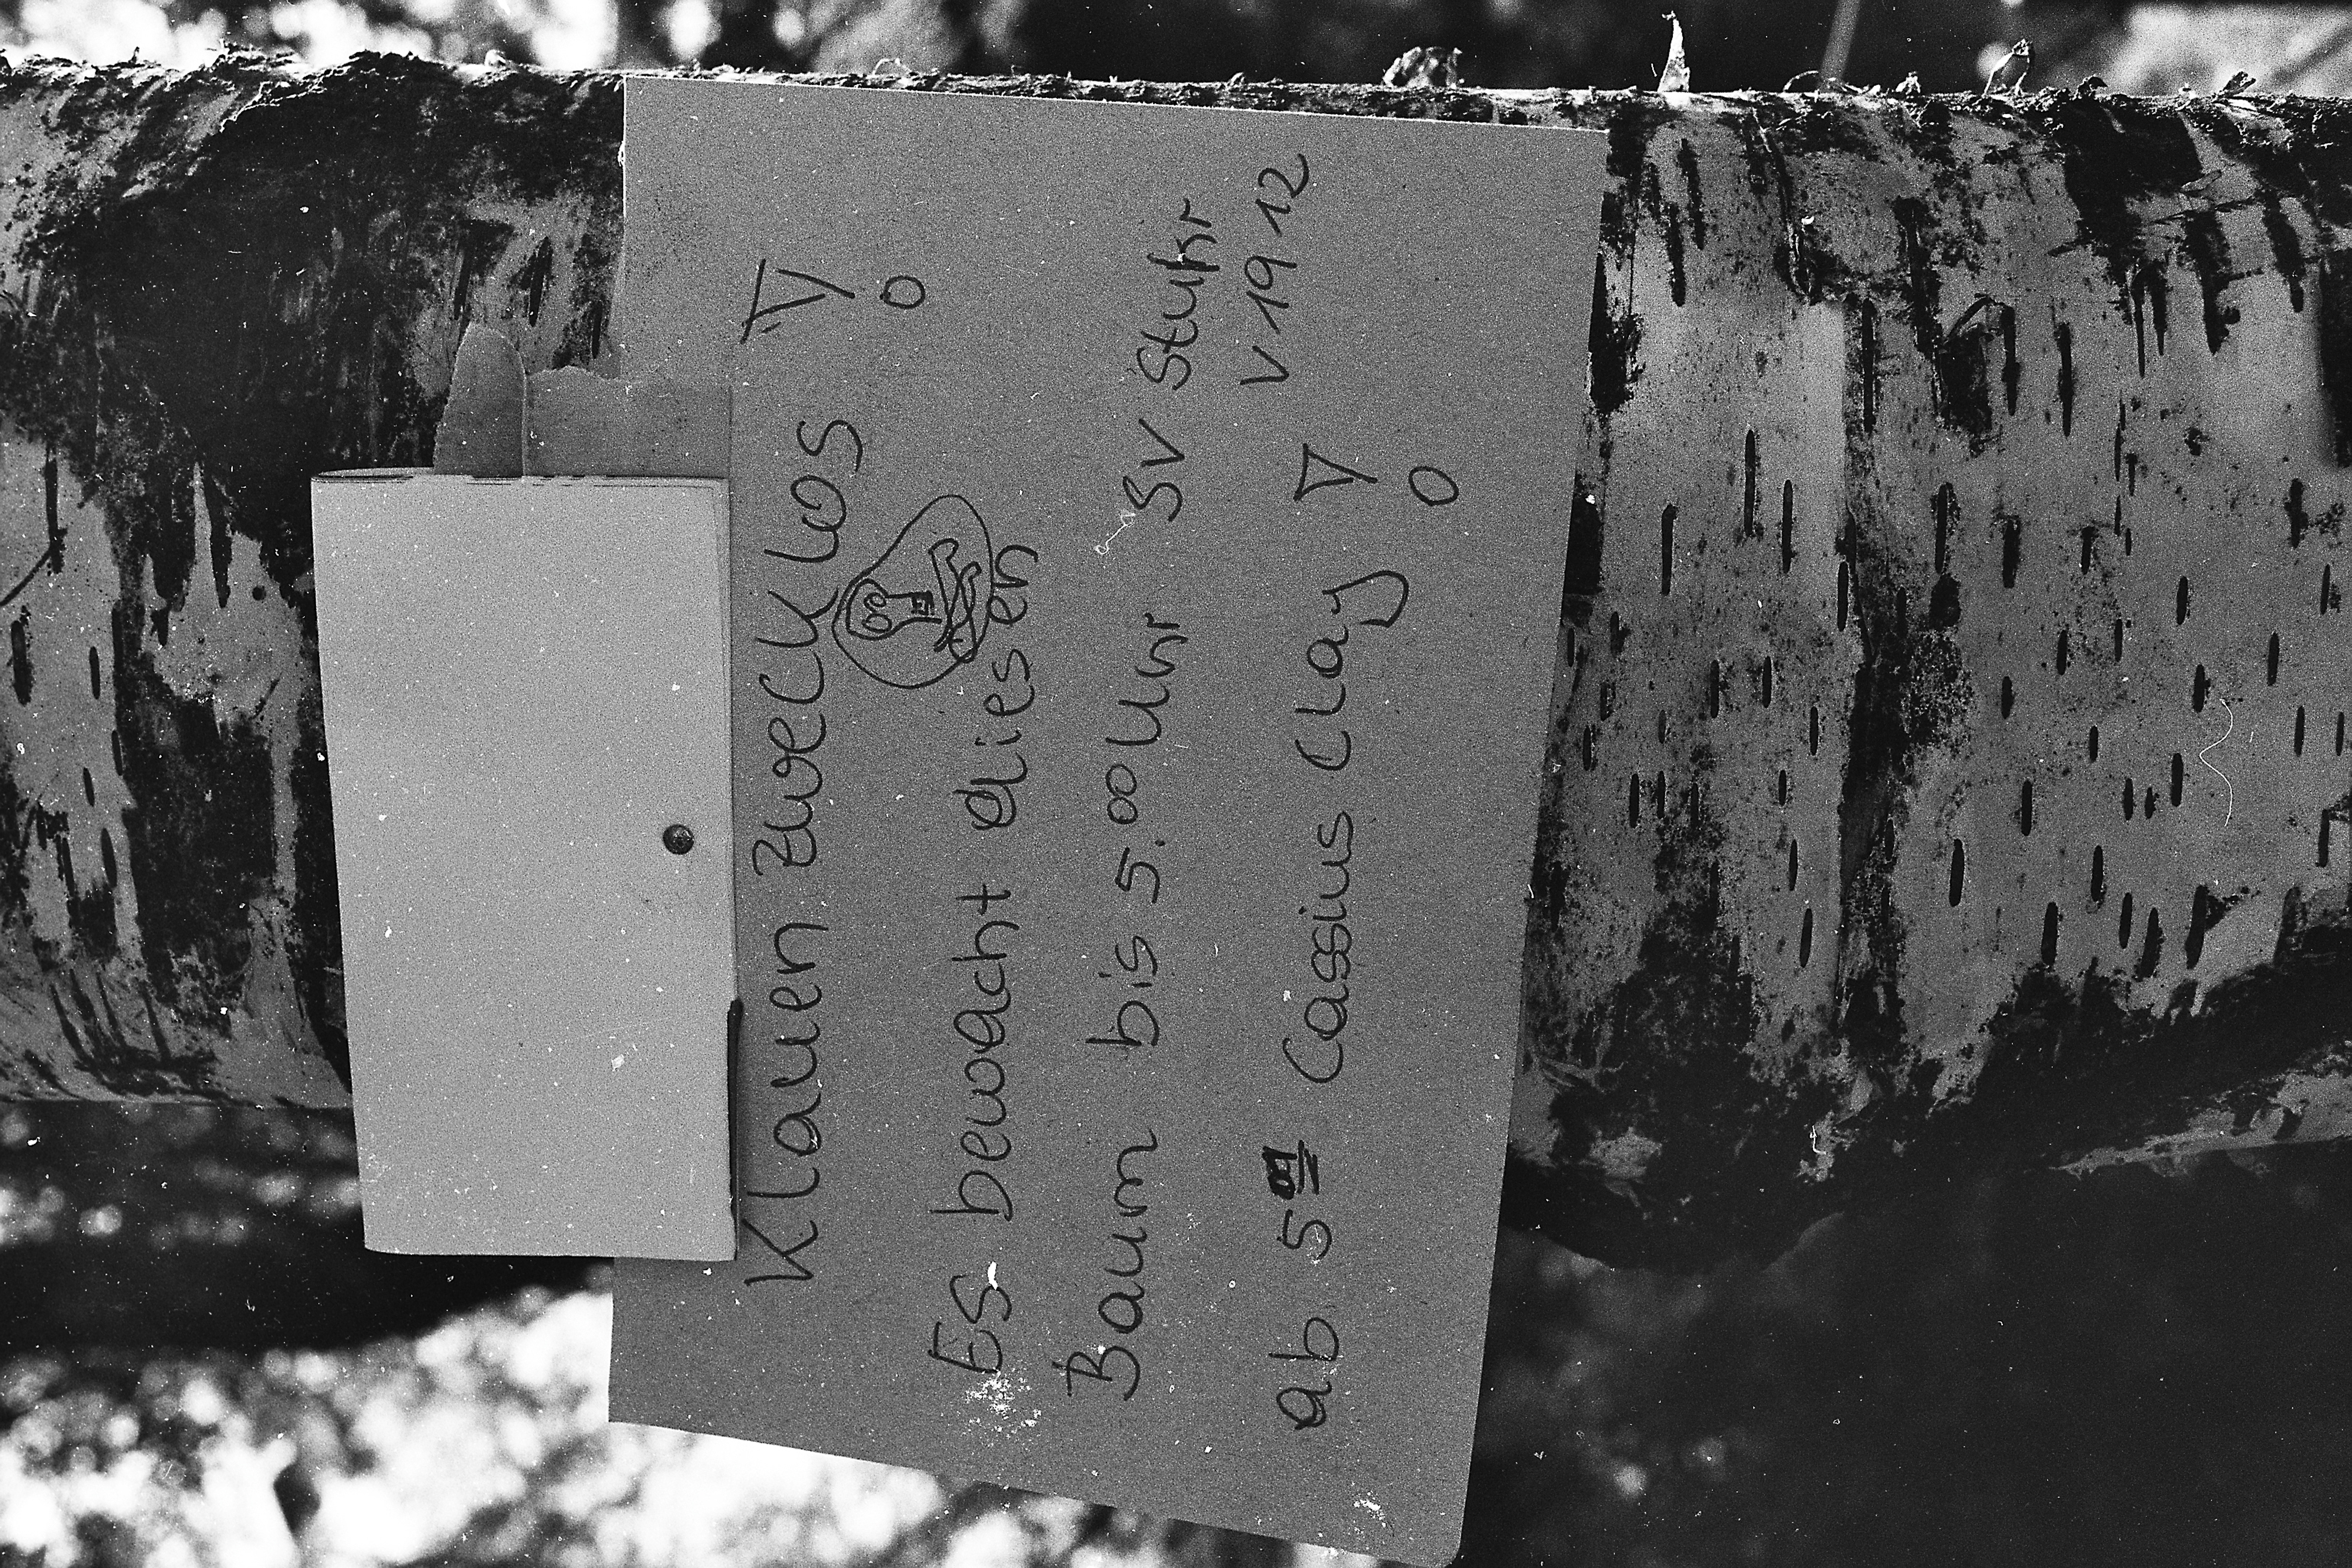 Klauen zwecklos!
Es bewacht diesen
Baum bis 5.00 Uhr SV Stuhr
v 1912
ab 5.01 Cassius Clay!